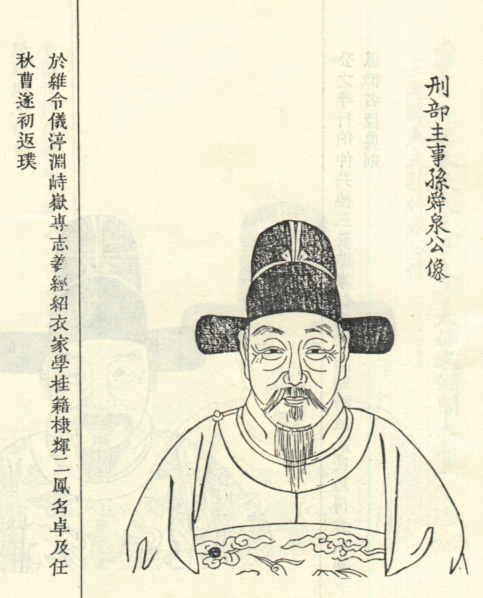 刑部主事孫舜泉公像
於維令儀渟淵峙嶽專志羲經紹衣家學桂籍棣輝二鳳名卓及任
秋曹遂初返璞